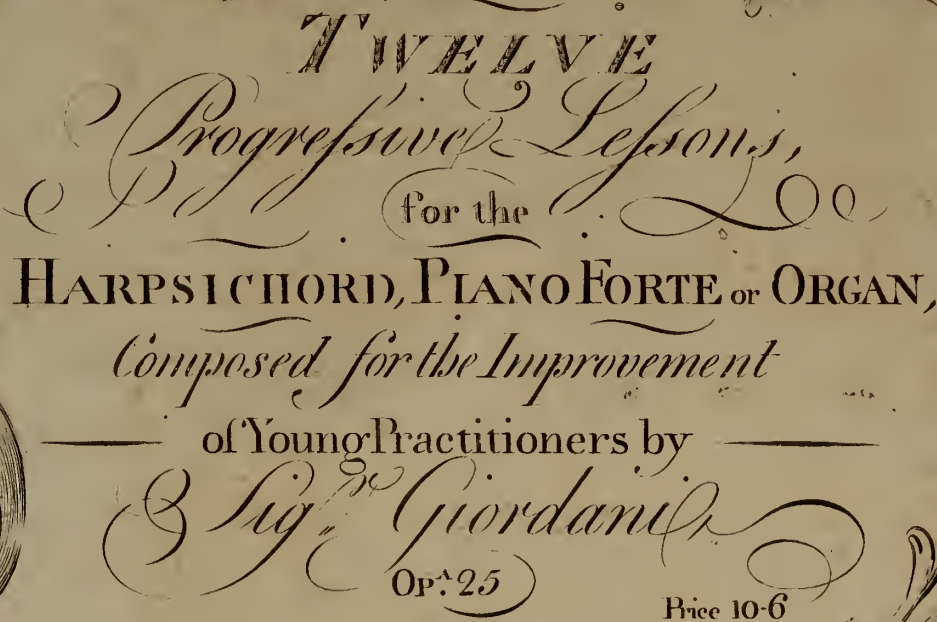 TWELVE
Progreſsive Leſsons,
for the
HARPSICHORD, PIANO FORTE or ORGAN,
Composed for the Improvement
of Young Practitioners by
Sigr. Giordani
OPA. 25
Price 10-6